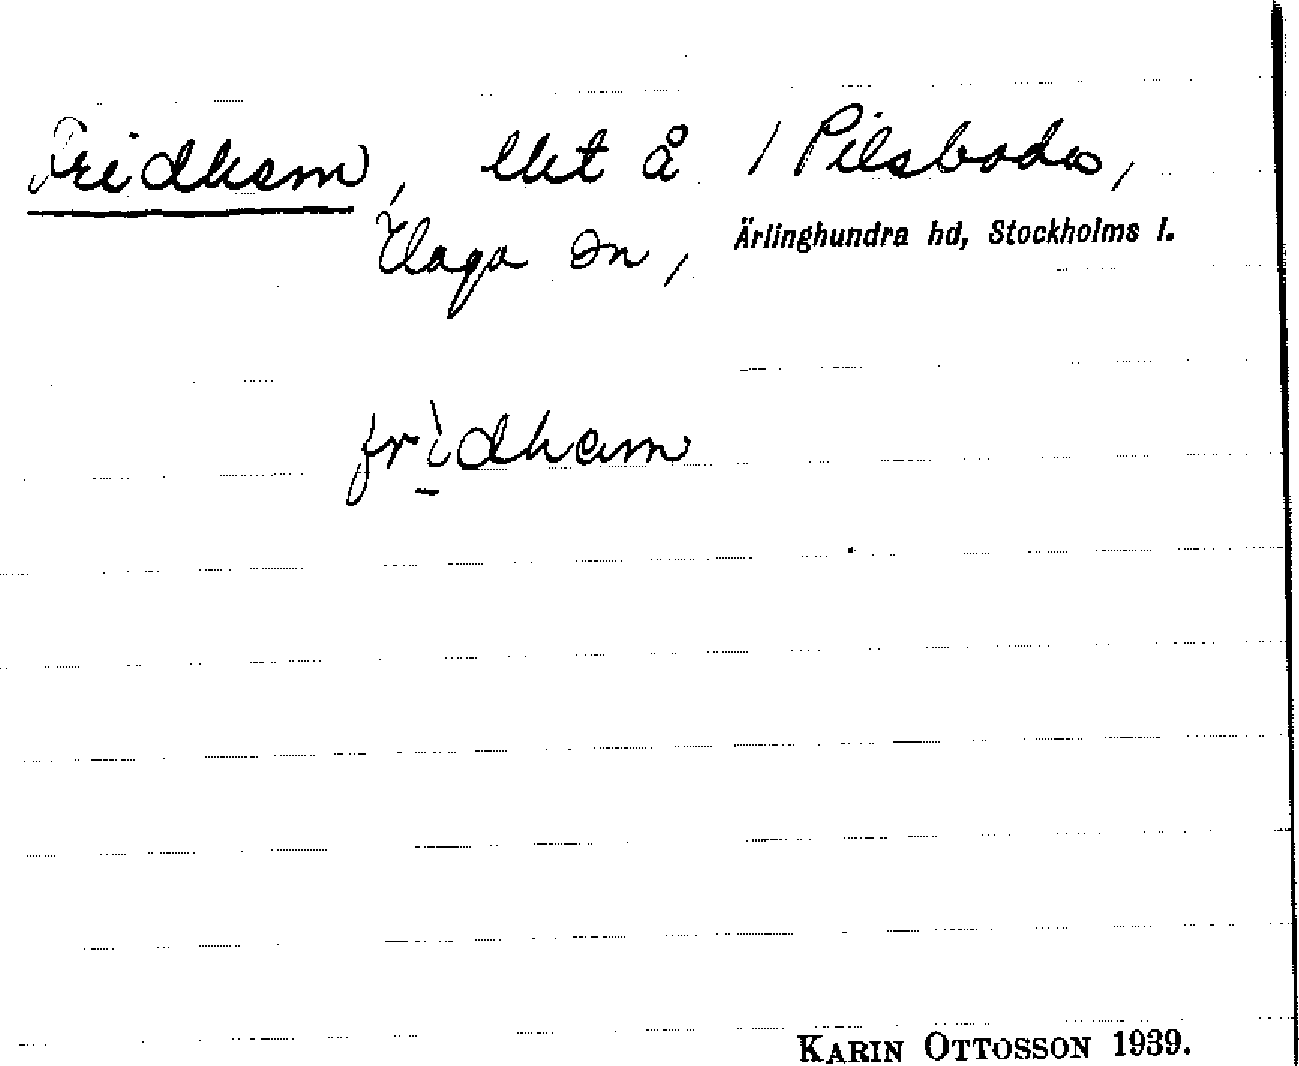 Fridhem, lht å 1 Pilsboda,
Skaga sn, Ärlinghundra hd, Stockholms l.
fridhem
KARIN OTTOSSON 1939.